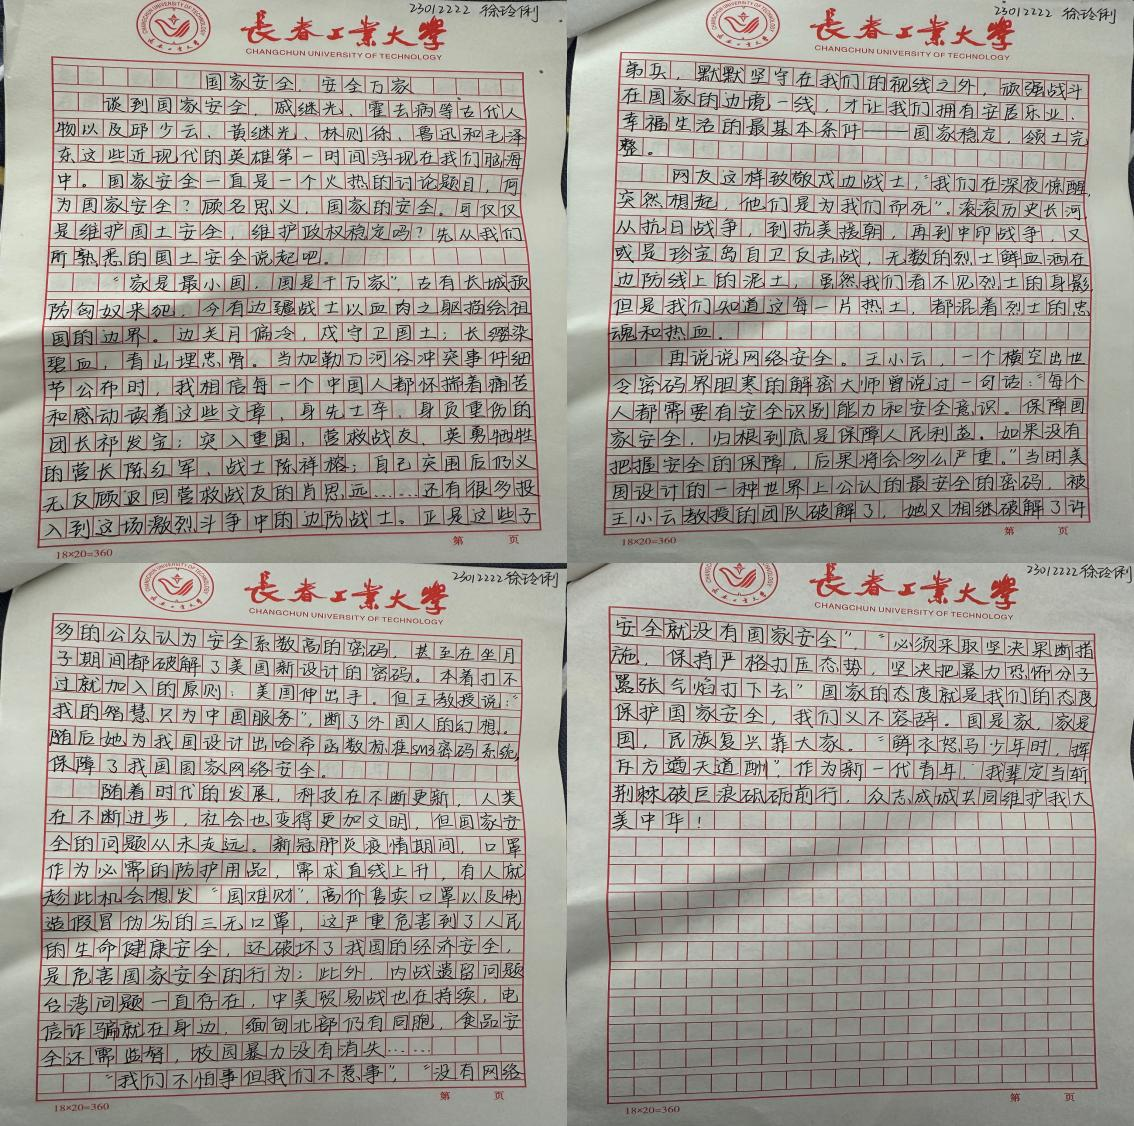 23012222 徐玲俐
CHANGCHUN UNIVERSITY OF TECHNOLOGY
长春工业大学
CHANGCHUN UNIVERSITY OF TECHNOLOGY
国家安全，安全万家
谈到国家安全，戚继光、霍去病等古代人
物以及邱少云、黄继光、林则徐、鲁迅和毛泽
东这些近现代的英雄第一时间浮现在我们脑海
中。国家安全一直是一个火热的讨论题目，何
为国家安全？顾名思义，国家的安全。可仅仅
是维护国土安全，维护政权稳定吗？先从我们
所熟悉的国土安全说起吧。
“家是最小国，国是千万家”，古有长城预
防匈奴来犯，今有边疆战士以血肉之躯描绘祖
国的边界。边关月偏冷，戍守卫国土；长缨染
碧血，青山埋忠骨。当加勒万河谷冲突事件细
节公布时，我相信每一个中国人都怀揣着痛苦
和感动读着这些文章，身先士卒、身负重伤的
团长祁发宝；突入重围，营救战友、英勇牺牲
的营长陈红军、战士陈祥榕；自己突围后仍义
无反顾返回营救战友的肖思远……还有很多投
入到这场激烈斗争中的边防战士。正是这些子
18×20=360
第 页
23012222 徐玲俐
长春工业大学
CHANGCHUN UNIVERSITY OF TECHNOLOGY
弟兵，默默坚守在我们的视线之外，顽强战斗
在国家的边境一线，才让我们拥有安居乐业、
幸福生活的最基本条件——国家稳定，领土完
整。
网友这样致敬戍边战士，“我们在深夜惊醒，
突然想起，他们是为我们而死”。滚滚历史长河
从抗日战争，到抗美援朝，再到中印战争，又
或是珍宝岛自卫反击战，无数的烈士鲜血洒在
边防线上的泥土，虽然我们看不见烈士的身影
但是我们知道这每一片热土，都混着烈士的忠
魂和热血。
再说说网络安全。王小云，一个横空出世
令密码界胆寒的解密大师曾说过一句话：“每个
人都需要有安全识别能力和安全意识。保障国
家安全，归根到底是保障人民利益。如果没有
把握安全的保障，后果将会多么严重。”当时美
国设计的一种世界上公认的最安全的密码，被
王小云教授的团队破解了，她又相继破解了许
18×20=360
第 页
23012222徐玲俐
长春工业大学
CHANGCHUN UNIVERSITY OF TECHNOLOGY
多的公众认为安全系数高的密码，甚至在坐月
子期间都破解了美国新设计的密码。本着打不
过就加入的原则；美国伸出手。但王教授说：“
我的智慧只为中国服务”，断了外国人的幻想。
随后她为我国设计出哈希函数标准SM3密码系统，
保障了我国国家网络安全。
随着时代的发展，科技在不断更新，人类
在不断进步，社会也变得更加文明，但国家安
全的问题从未走远。新冠肺炎疫情期间，口罩
作为必需的防护用品，需求直线上升，有人就
趁此机会想发“国难财”，高价售卖口罩以及制
造假冒伪劣的三无口罩，这严重危害到了人民
的生命健康安全，还破坏了我国的经济安全，
是危害国家安全的行为；此外，内战遗留问题
台湾问题一直存在，中美贸易战也在持续，电
信诈骗就在身边，缅甸北部仍有同胞，食品安
全还需监督，校园暴力没有消失……
“我们不怕事但我们不惹事”，“没有网络
18×20=360
第 页
23012222徐玲俐
长春工业大学
CHANGCHUN UNIVERSITY OF TECHNOLOGY
安全就没有国家安全”，“必须采取坚决果断措
施，保持严格打压态势，坚决把暴力恐怖分子
嚣张气焰打下去”国家的态度就是我们的态度
保护国家安全，我们义不容辞。国是家，家是
国，民族复兴靠大家。“鲜衣怒马少年时，挥
斥方遒天道酬”，作为新一代青年，我辈定当斩
荆棘破巨浪砥砺前行，众志成城共同维护我大
美中华！
18×20=360
第 页